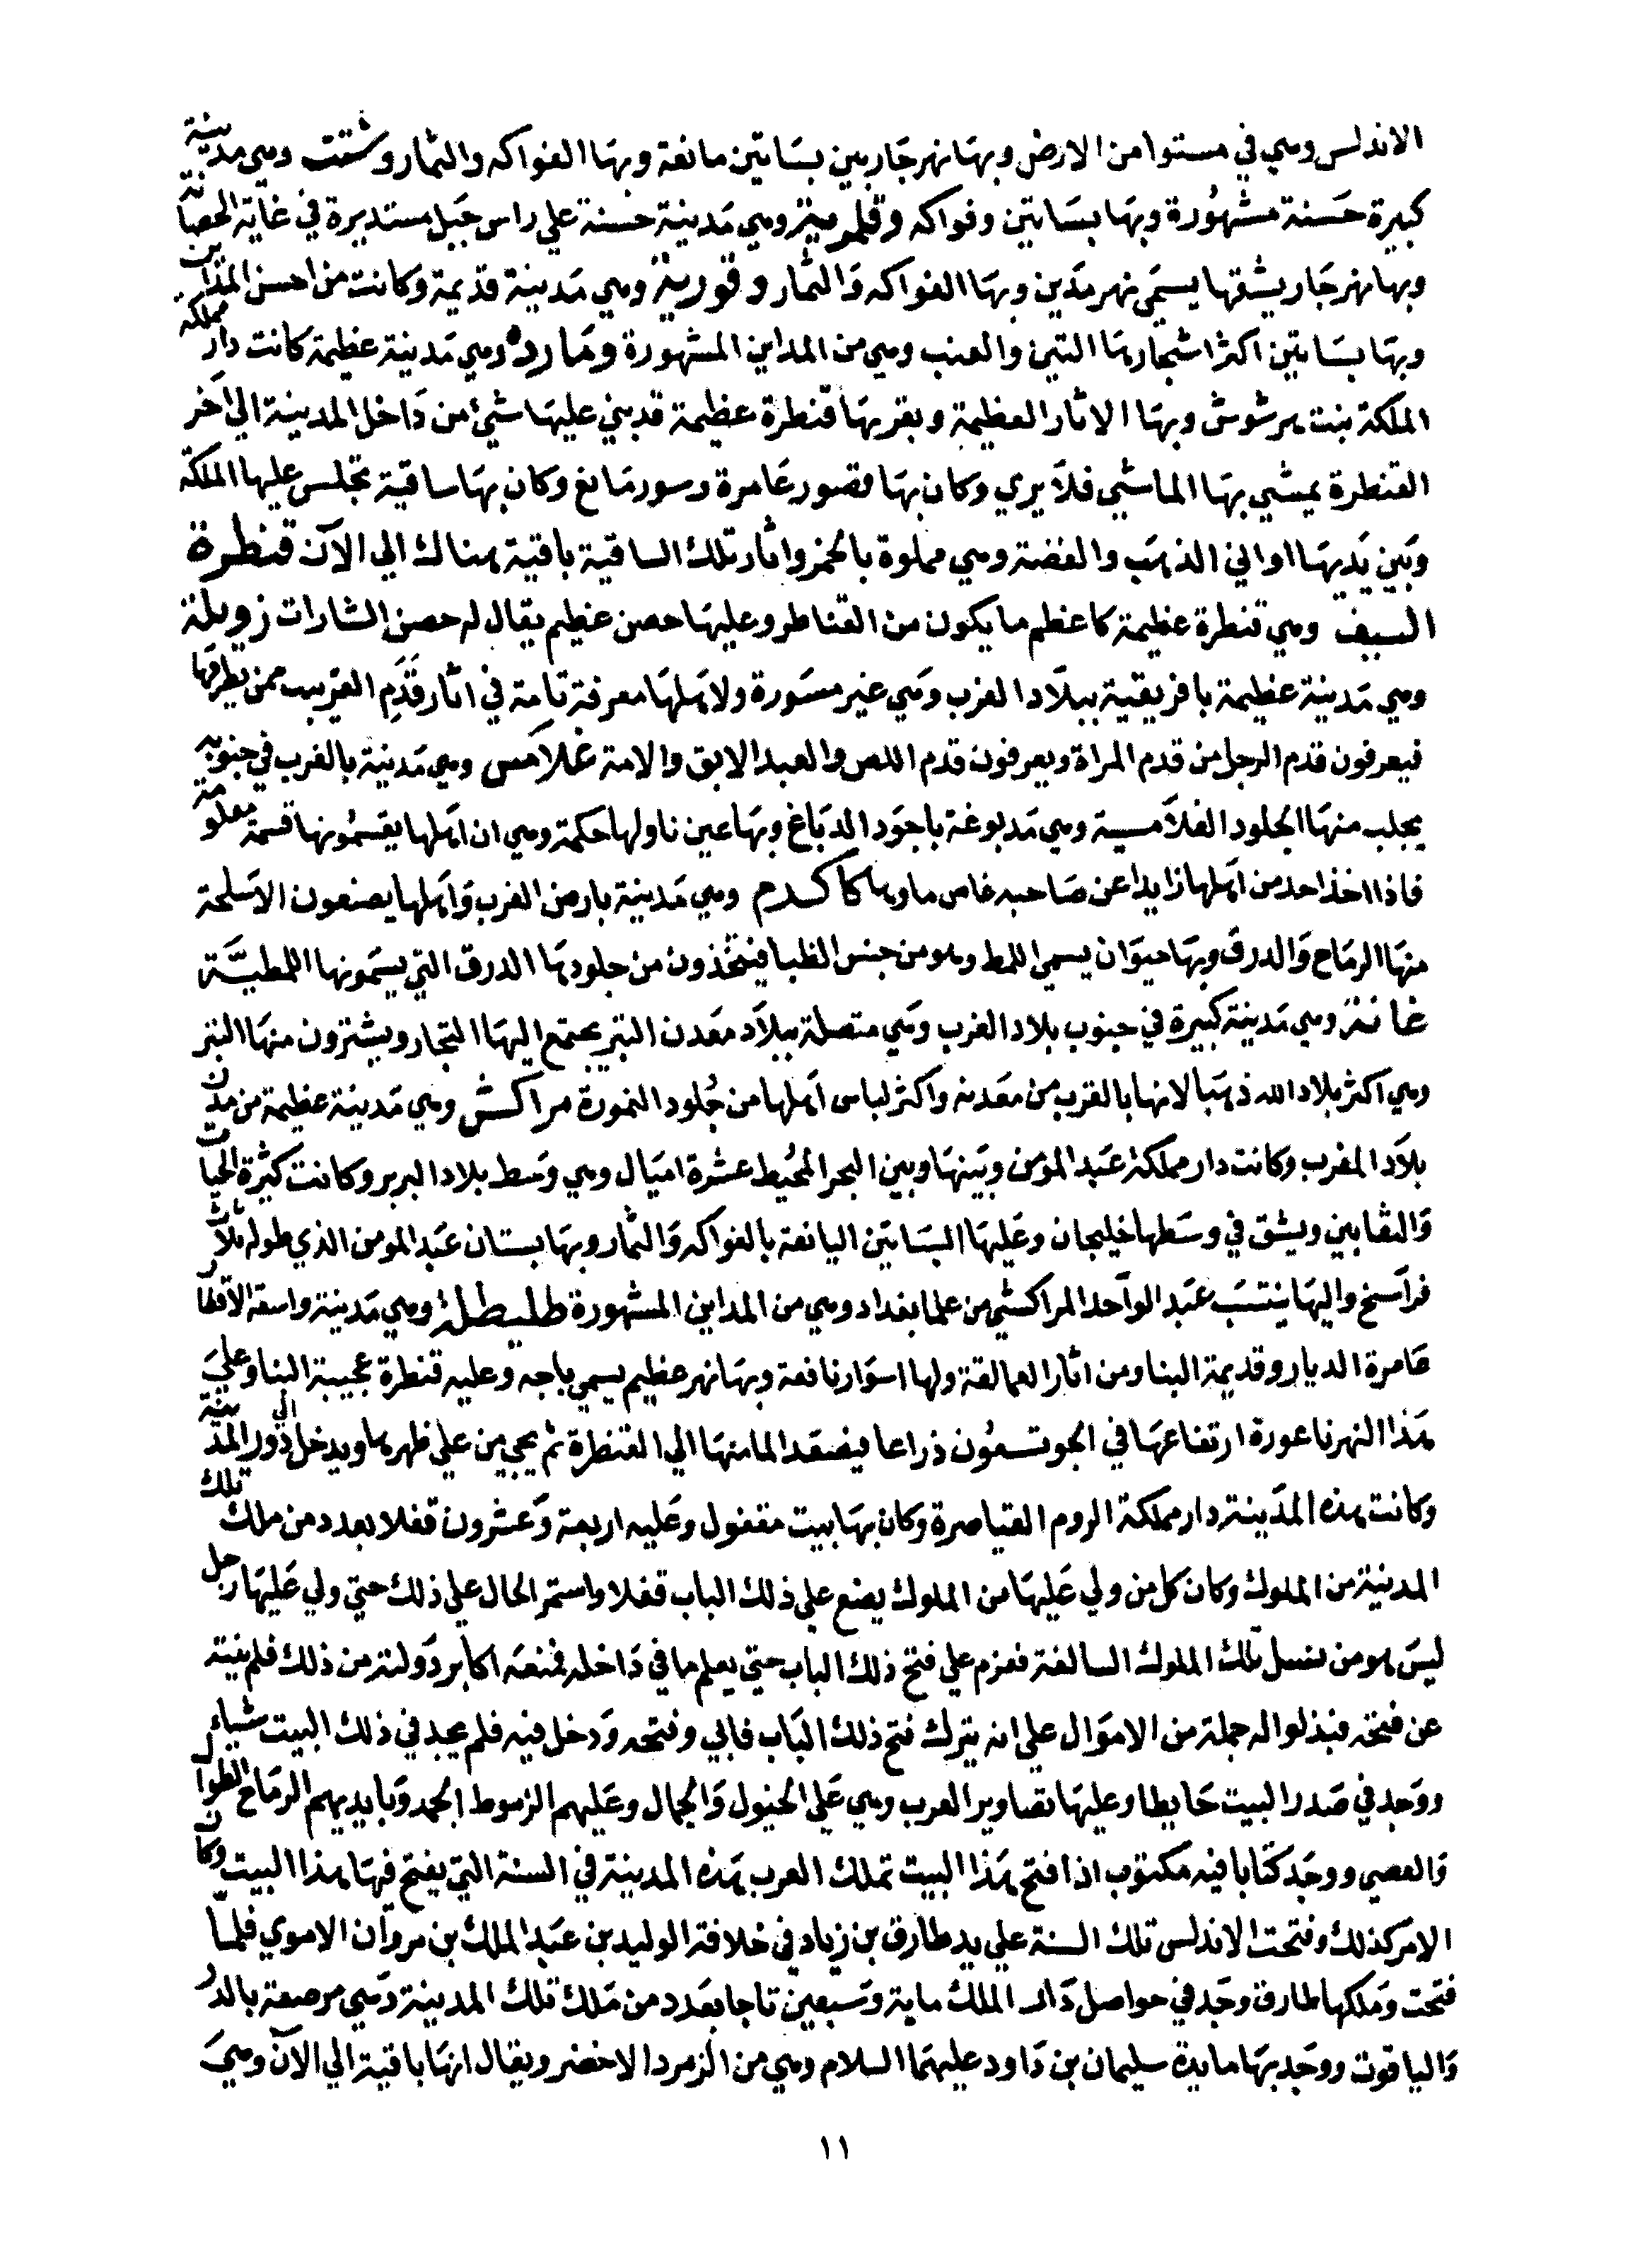 الاندلس وهي في مستوا من الارض وبها نهر جار بين بساتين مانعة وبها الفواكه والثمار وشنت وهي مدينة
كبيرة حسنة مشهورة وبها بساتين وفواكه وقلمرية وهي مدينة حسنة علي راس جبل مستديرة في غاية الحصانة
وبها نهر جار يشقها يسمي نهر مدين وبها الفواكه والثمار وقورية وهي مدينة قديمة وكانت من احسن المداين
وبها بساتين اكثر اشجارها التين والعنب وهي من المداين المشهورة وماردة وهي مدينة عظيمة كانت دار مملكة
الملكة بنت هرشوش وبها الاثار العظيمة وبقربها قنطرة عظيمة قد بني عليها شيء من داخل المدينة الي اخر
القنطرة يمشي بها الماشي فلا يري وكان بها قصور عامرة وسور مانع وكان بها ساقية تجلس عليها الملكة
وبين يديها اواني الذهب والفضة وهي مملوة بالخمر واثار تلك الساقية باقية هناك الي الآن قنطرة
السيف وهي قنطرة عظيمة كاعظم ما يكون من القناطر وعليها حصن عظيم يقال له حصن الشارات زويلة
وهي مدينة عظيمة بافريقية ببلاد الغرب وهي غير مسورة ولاهلها معرفة تامة في اثار قدم الغريب ممن يطرقها
فيعرفون قدم الرجل من قدم المراة ويعرفون قدم اللص والعبد الابق والامة غلامس وهي مدينة بالغرب في جنوبه
يجلب منها الجلود الغلامسية وهي مدبوغة باجود الدباغ وبها عين ناولها حكمة وهي ان اهلها يقسمونها قسمة معلومة
فاذا اخذ احد من اهلها زايدا عن صاحبه غاص ماوها كاكدم وهي مدينة بارض الغرب واهلها يصنعون الاسلحة
منها الرماح والدرق وبها حيوان يسمي اللمط وهو من جنس الظبا فيتخذون من جلودها الدرق التي يسمونها اللمطيَّة
غانة وهي مدينة كبيرة في جنوب بلاد الغرب وهي متصلة ببلاد معدن التبر يجتمع اليها التجار ويشترون منها التبر
وهي اكثر بلاد الله ذهبا لانها بالقرب من معدنه واكثر لباس اهلها من جلود النمورة مراكش وهي مدينة عظيمة من مدن
بلاد المغرب وكانت دار مملكة عبد المؤمن وبينها وبين البحر المحيط عشرة اميال وهي وسط بلاد البربر وكانت كثيرة الحيات
والثعابين ويشق في وسطها خليجان وعليها البساتين اليانعة بالفواكه والثمار وبها بستان عبد المومن الذي طوله ثلاث
فراسخ واليها ينتسب عبد الواحد المراكشي من علما بغداد وهي من المداين المشهورة طليطلة وهي مدينة واسعة الاقطار
عامرة الديار وقديمة البنا ومن اثار العمالقة ولها اسوار نافعة وبها نهر عظيم يسمي باجه وعليه قنطرة عجيبة البنا وعلي
هذا النهر ناعورة ارتفاعها في الجو تسعون ذراعا فيصعد الما منها الي القنطرة ثم يجي من علي ظهرها ويدخل الي دور المدينة
وكانت هذه المدينة دار مملكة الروم القياصرة وكان بها بيت مقفول وعليه اربعة وعشرون قفلا بعدد من ملك تلك
المدينة من الملوك وكان كل من ولي عليها من الملوك يضع علي ذلك الباب قفلا واستمر الحال علي ذلك حتي ولي عليها رجل
ليس هو من نسل تلك الملوك السالفة فعزم علي فتح ذلك الباب حتي يعلم ما في داخله فمنعه اكابر دولته من ذلك فلم ينته
عن فتحه فبذلوا له جملة من الاموال علي انه يترك فتح ذلك الباب فابي وفتحه ودخل فيه فلم يجد في ذلك البيت شيا
ووجد في صدر البيت حايطا وعليها تصاوير العرب وهي علي الخيول والجمال وعليهم الزموط الحمر وبايديهم الرماح الطوال
والعصي ووجد كتابا فيه مكتوب اذا فتح هذا البيت تملك العرب هذه المدينة في السنة التي يفتح فيها هذا البيت وكان
الامر كذلك وفتحت الاندلس تلك السنة علي يد طارق بن زياد في خلافة الوليد بن عبد الملك بن مروان الاموي فلمّا
فتحت وملكها طارق وجد في حواصل دار الملك ماية وسبعين تاجا بعدد من ملك تلك المدينة وهي مرصعة بالدر
والياقوت ووجد بها مايدة سليمان بن داود عليهما السلام وهي من الزمرد الاخضر ويقال انها باقية الي الآن وهي
١١